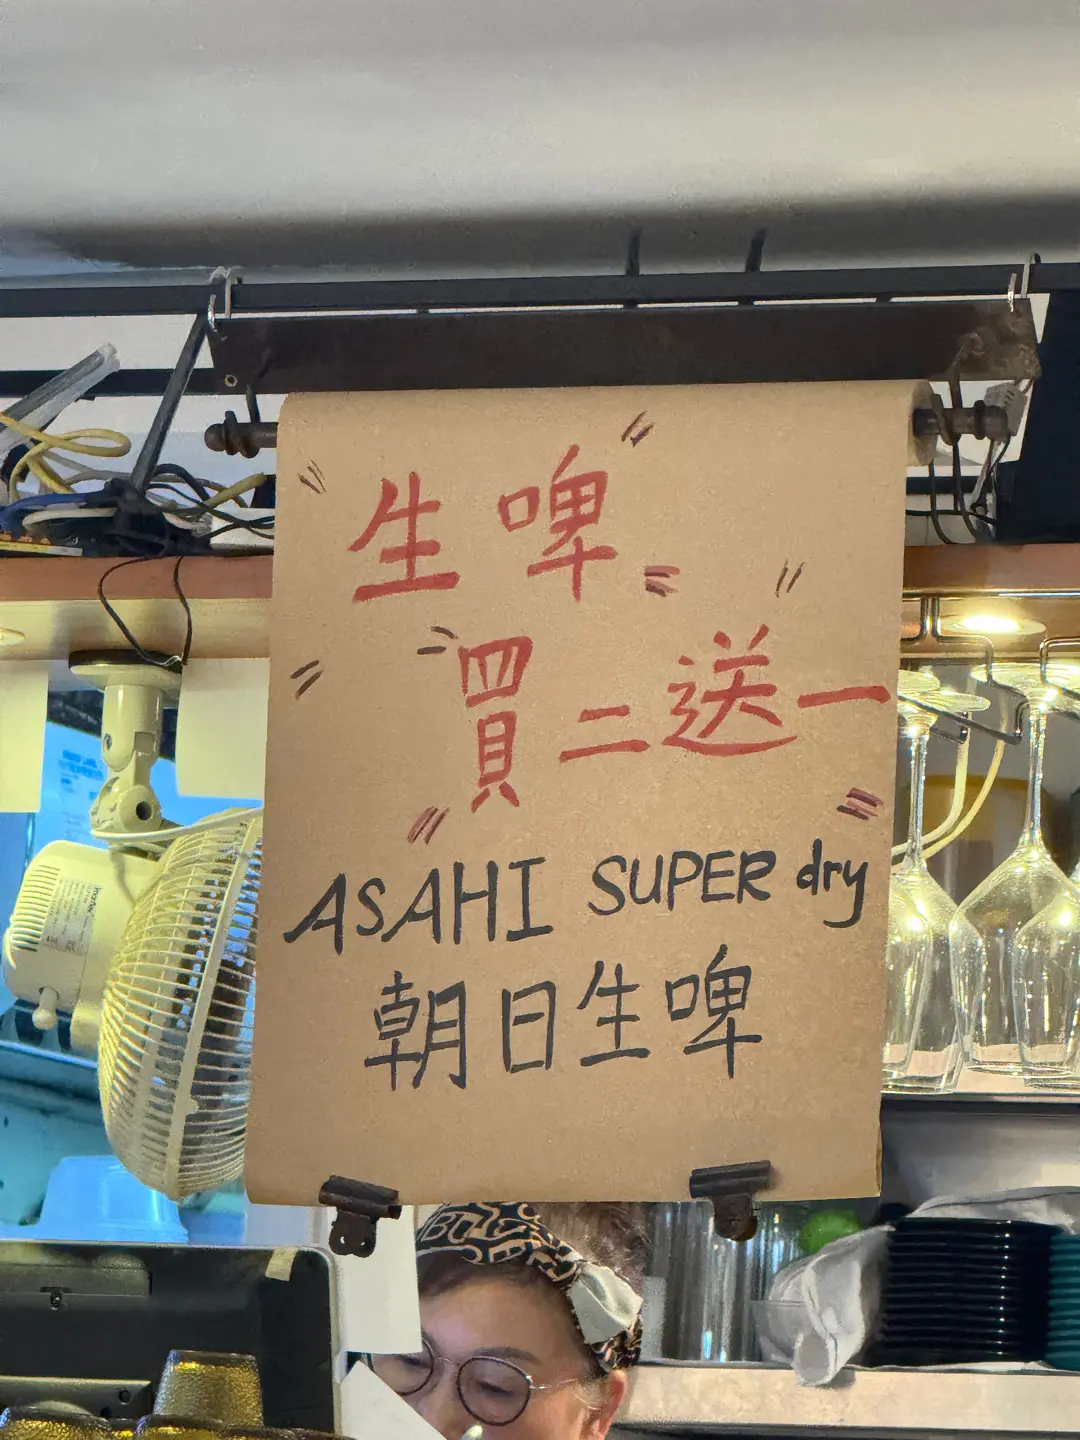 生啤
買二送一
ASAHI SUPER dry
朝日生啤